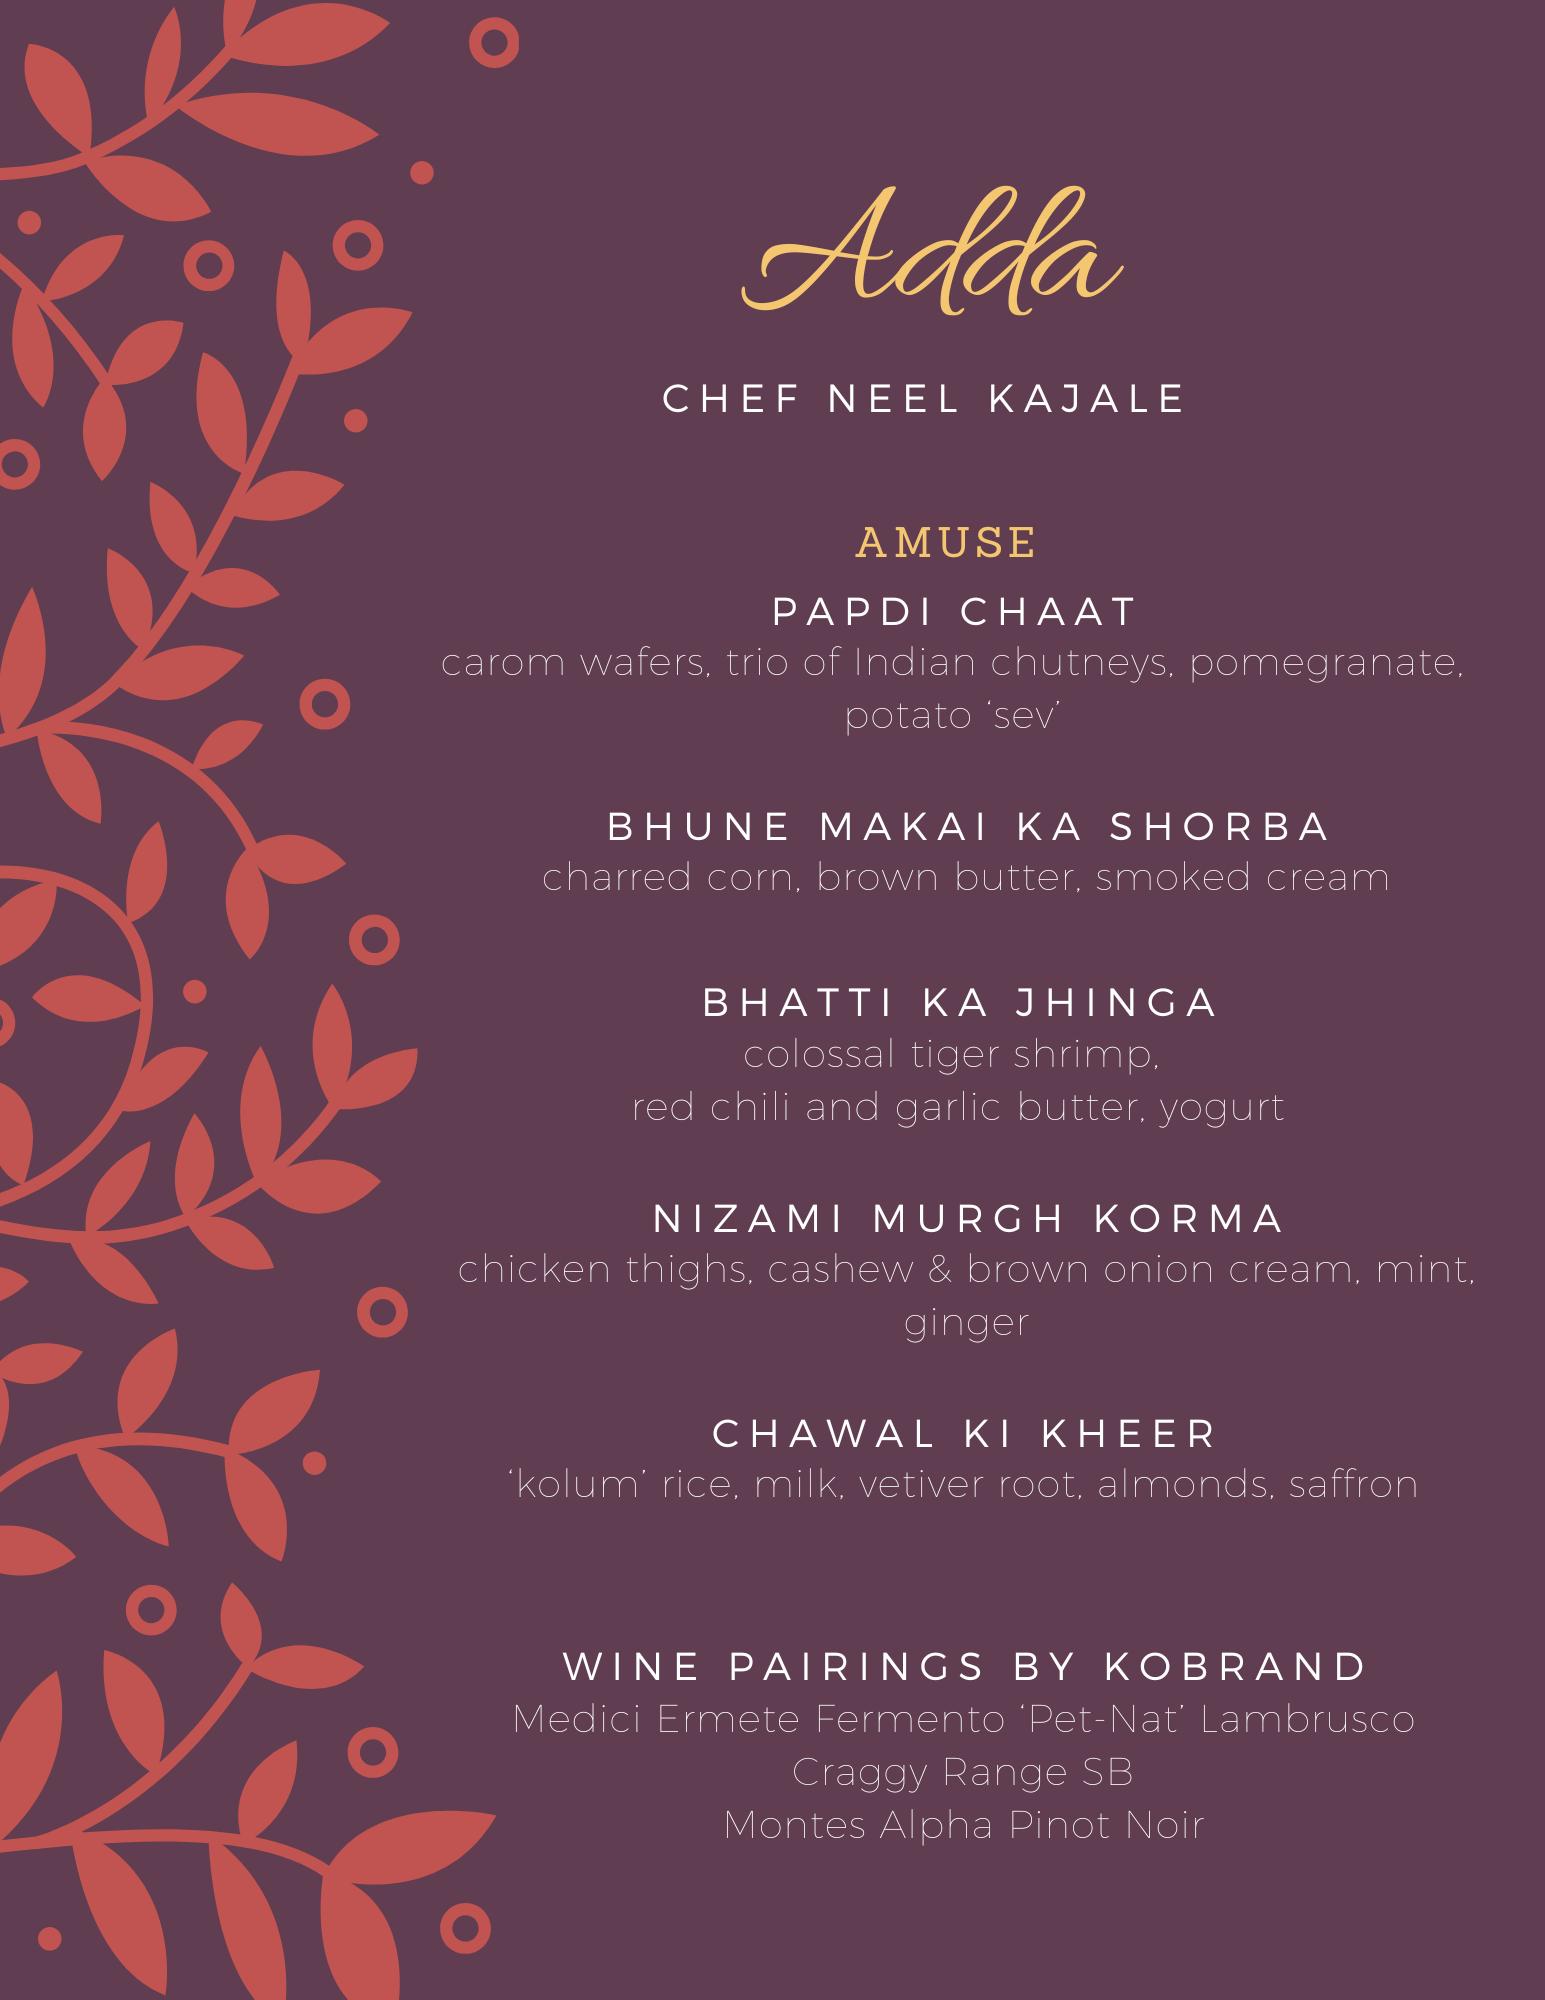 Adda
CHEF NEEL KAJALE
AMUSE
PAPDI CHAAT
carom wafers, trio of Indian chutneys, pomegranate,
potato ‘sev’
BHUNE MAKAI KA SHORBA
charred corn, brown butter, smoked cream
BHATTI KA JHINGA
colossal tiger shrimp,
red chili and garlic butter, yogurt
NIZAMI MURGH KORMA
chicken thighs, cashew & brown onion cream, mint,
ginger
CHAWAL KI KHEER
‘kolum’ rice, milk, vetiver root, almonds, saffron
WINE PAIRINGS BY KOBRAND
Medici Ermete Fermento ‘Pet-Nat’ Lambrusco
Craggy Range SB
Montes Alpha Pinot Noir